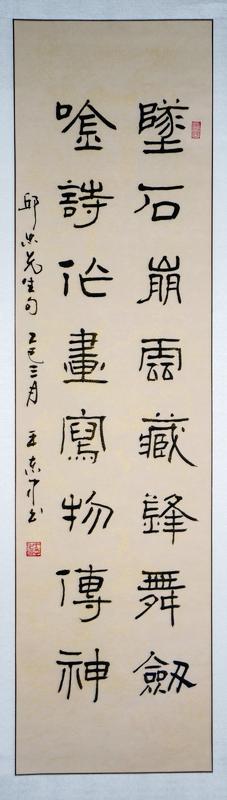 墜石崩雲藏鋒舞劔
唫詩作畫寫物傳神
邱忠先生句 乙巳三月 王京中书